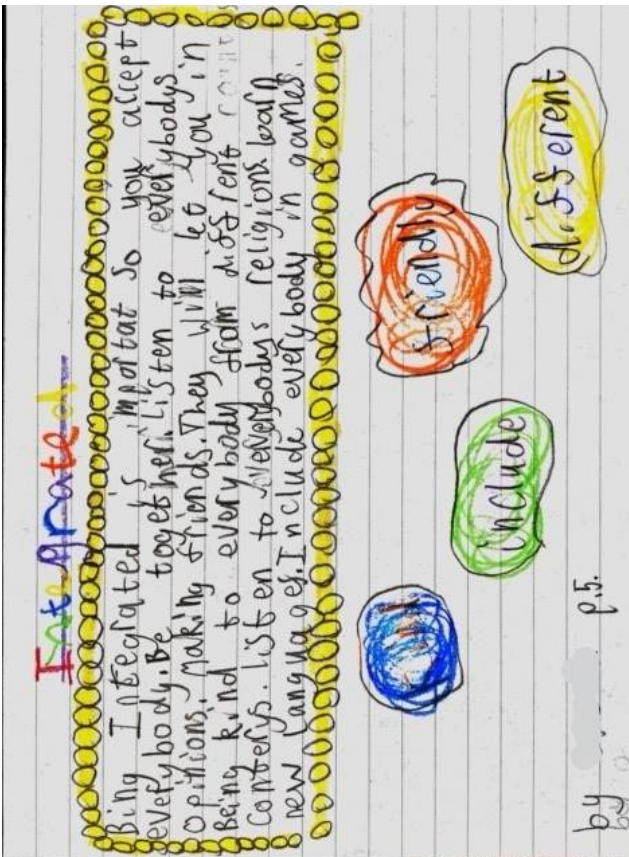 Integrated
Bing Integrated is importat so you accept
everybody. Be together. Listen to everybodys
opinions. Making friends. They will let you in
Being kind to everybody from diffrent
conterys. Listen to everybodys religions learn
new languages. Include everybody in games.
kind
include
friendly
different
by p.5.